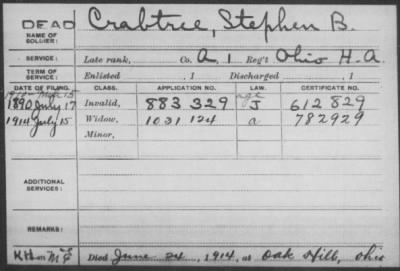 DEAD Crabtree, Stephen B.
NAME OF SOLDIER:
SERVICE: Late rank, Co. A, 1 Reg't Ohio H.A.
TERM OF SERVICE: Enlisted , 1 Discharged , 1
DATE OF FILING. CLASS. APPLICATION NO. LAW. CERTIFICATE NO.
age
1890 July 17 Invalid, 883 329 J 612 829
1914 July 15 Widow, 1031 124 a 782929
Minor,
ADDITIONAL SERVICES:
REMARKS:
Died June 24, 1914, at Oak Hill, Ohio